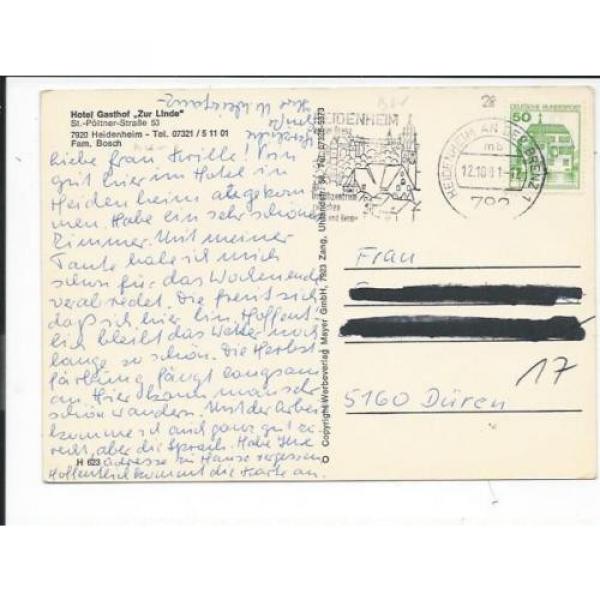 Hotel Gasthof „Zur Linde"
St.-Pöltner-Straße 53
7920 Heidenheim - Tel. 07321 / 5 11 01
Fam. Bosch
Liebe Frau Bin
gut hier im Hotel in
Heidenheim angekom
men. Habe ein sehr schönes
Zimmer. Mit meiner
Tante habe ich mich
schon für das Wochenende
verabredet. Die freut sich
daß ich hier bin. Hoffent
lich bleibt das Wetter noch
lange so schön. Die Herbst
färbung fängt langsam
an. Hier kann man sehr
schön wandern. Mit der Arbeit
komme ich auch ganz gut zu
recht, aber die Sprach. Habe Ihre
Adresse zu Hause vergessen
Hoffentlich kommt die Karte an.
Herzliche
Grüße
Ihre
H 623
© Copyright Werbeverlag Mayer GmbH, 7923 Zang, Tel. 07328-6373
HEIDENHEIM
HEIDENHEIM AN DER BRENZ 1
mb
12.10.81
792
DEUTSCHE BUNDESPOST
50
28
Frau
17
5160 Düren